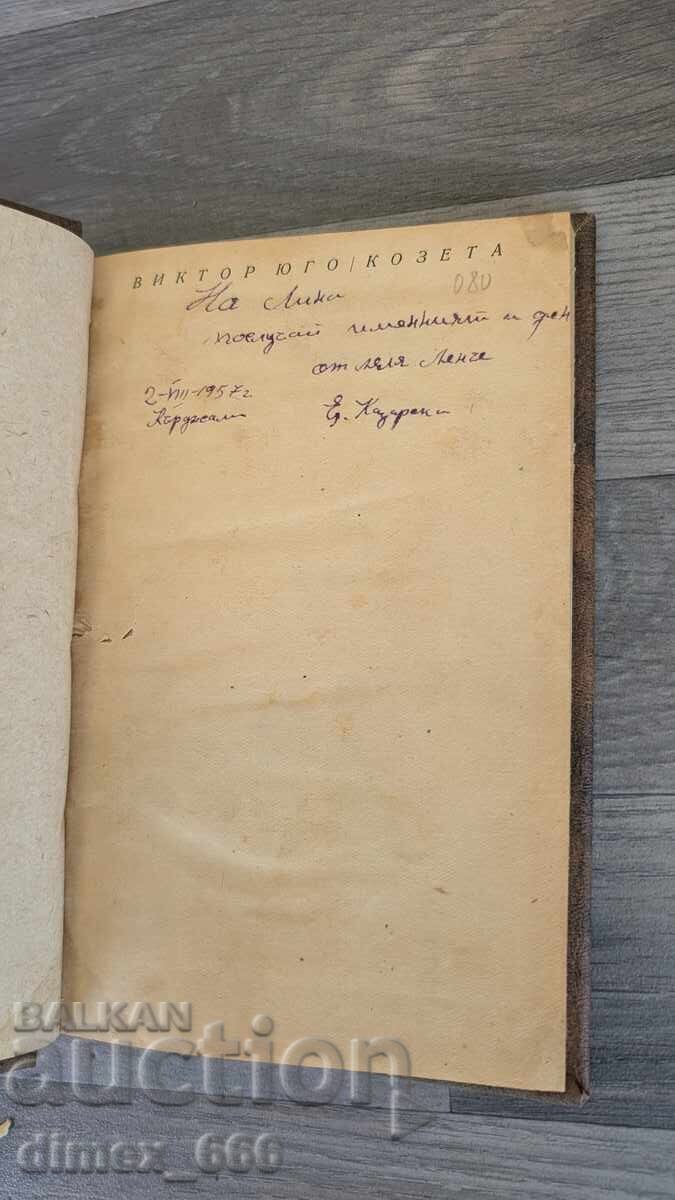 ВИКТОР ЮГО / КОЗЕТА
080
На Лина
по случай именният и ден
от леля Ленче
2-VIII-1957 г.
Кърджали
Казарски
BALKAN
auction
dimex_666